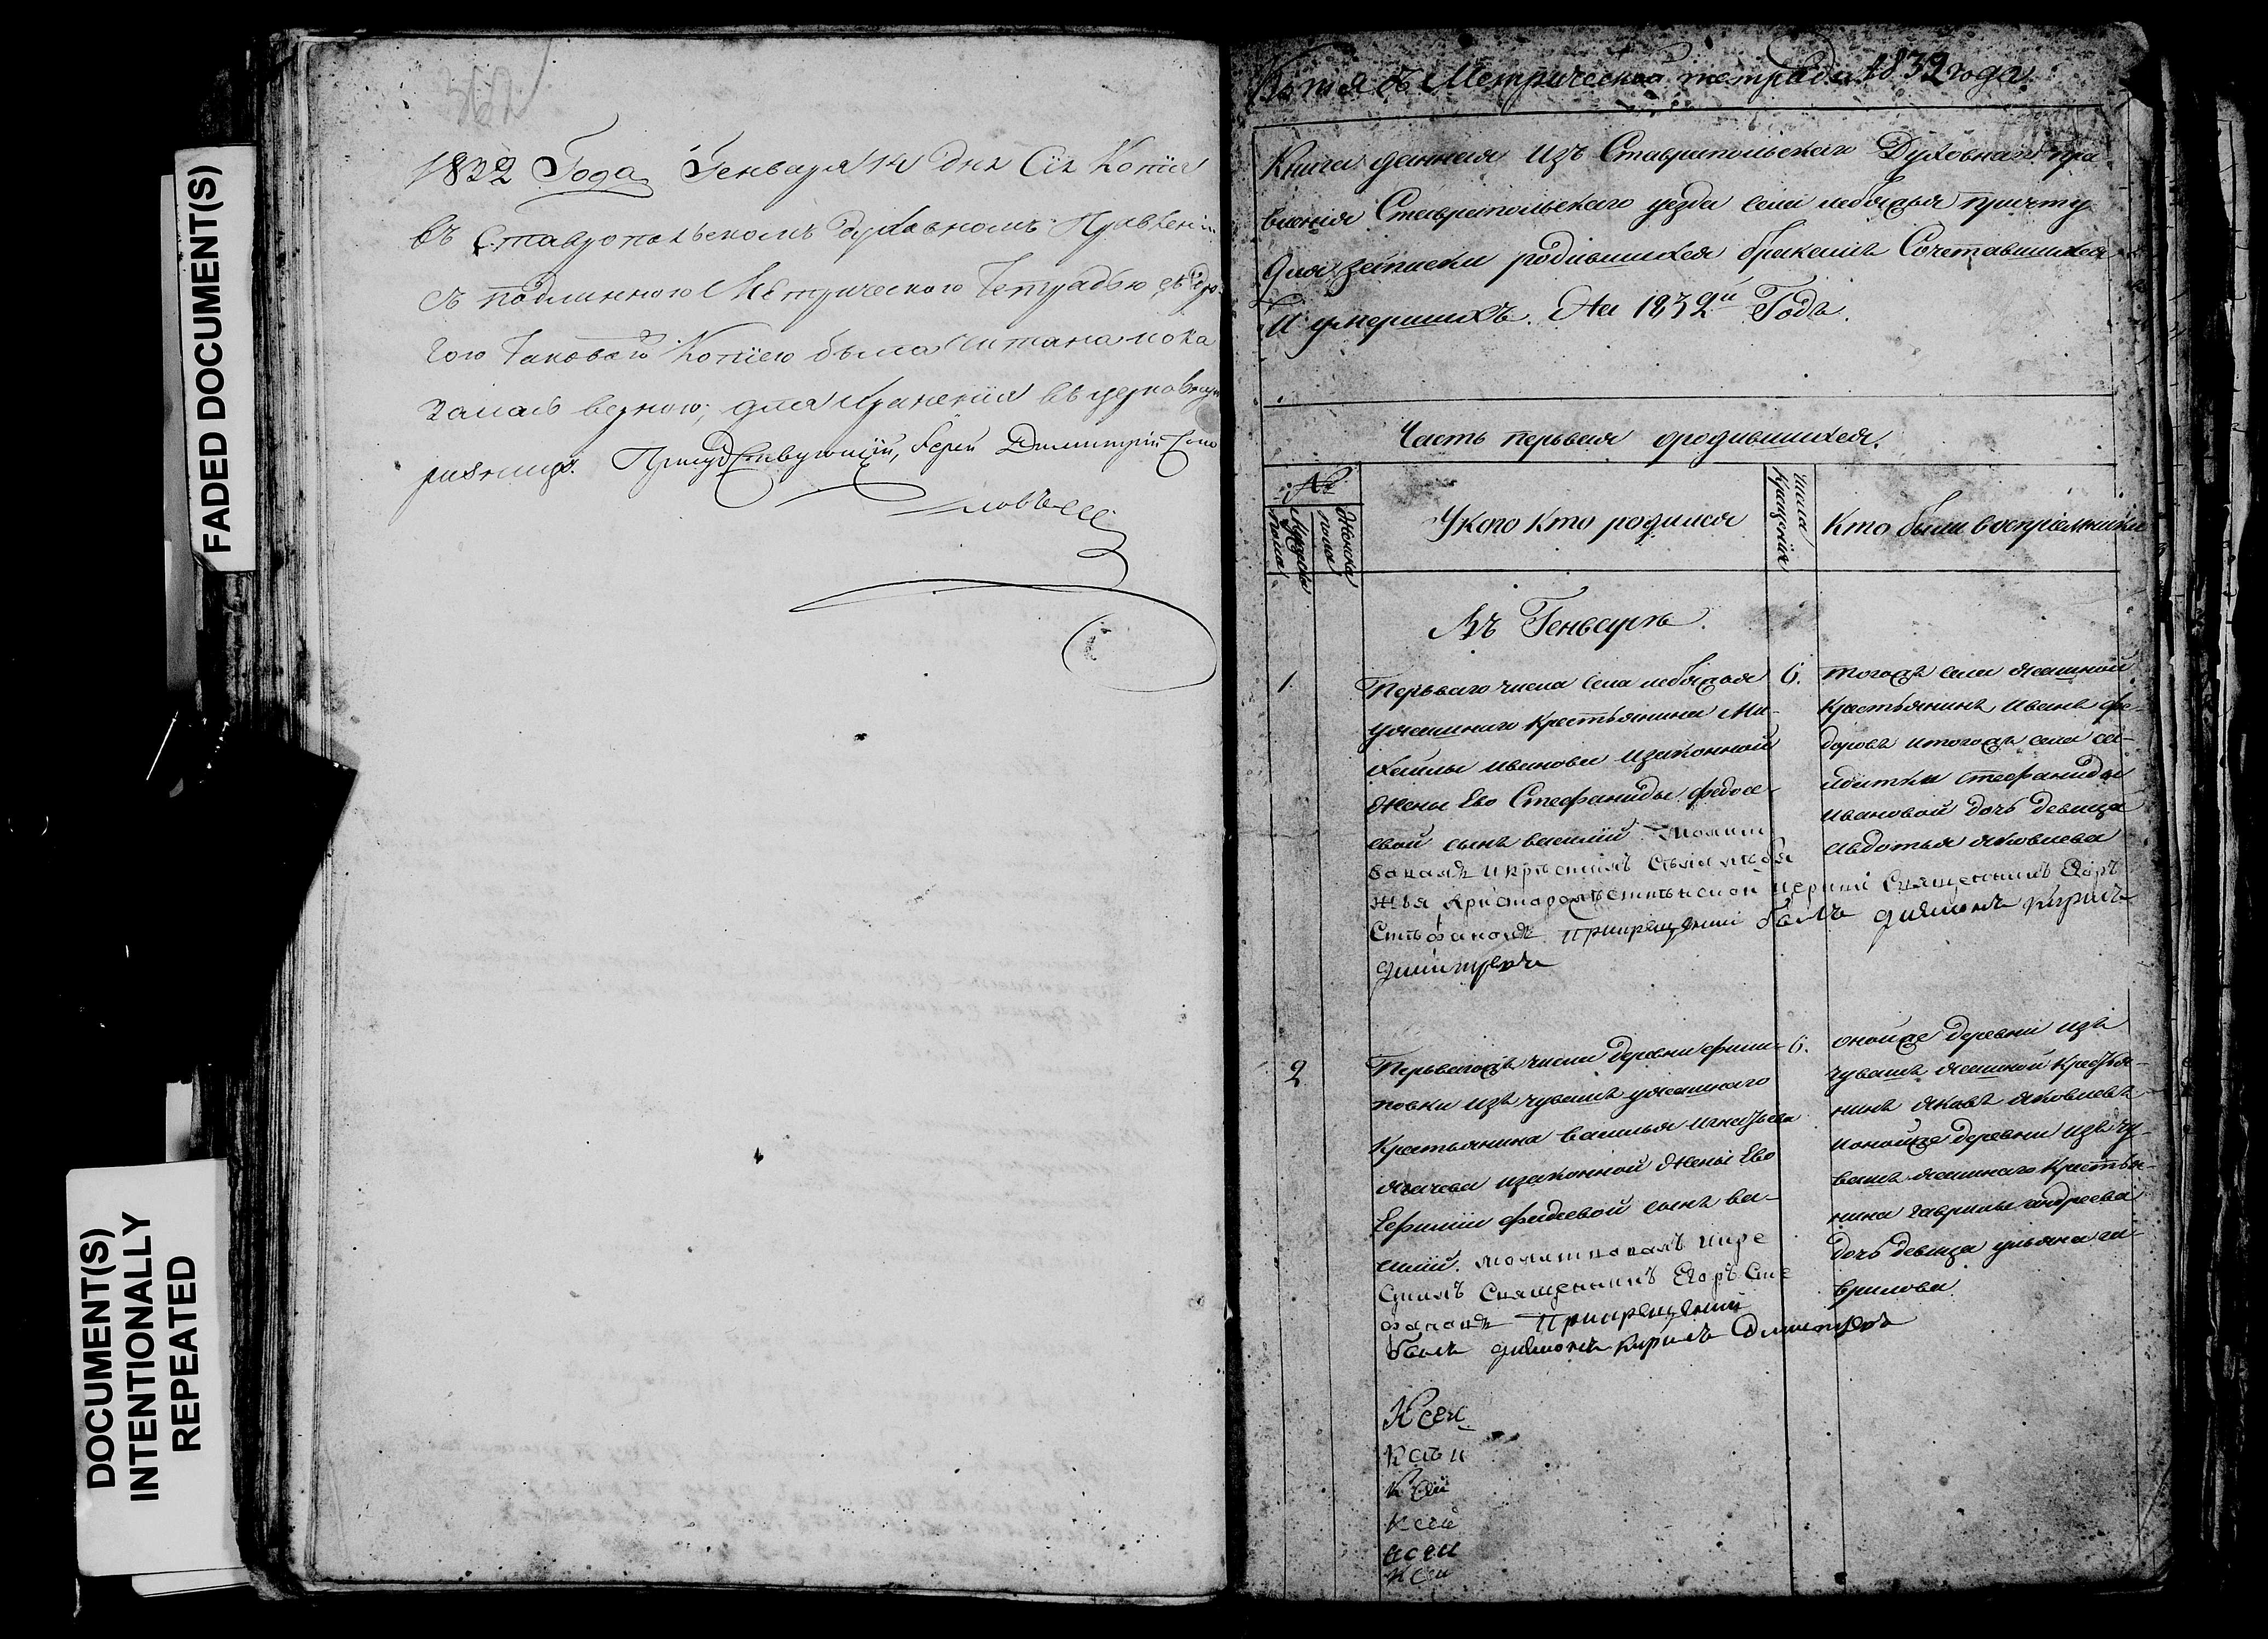 FADED DOCUMENT(S)
DOCUMENT(S)
INTENTIONALLY
REPEATED
362
1832 Года Генваря 14 дня Сія Копія
въ Ставропольскомъ Духовномъ Правлені
съ подлинною Метрическою Тетрадью
таковою Копіею была читана и ока
залась верною; для храненія въ церковную
ризницу. Присудствующій, Іерей Димитрій
ловъ
Копія съ Метрической тетради 1832 года
Книга данная изъ Ставропольскаго Духовнаго пра
вленія Ставропольскаго уезда села лебяжья причту
Для записки родившихся бракомъ Сочетавшихся
И умершихъ. На 1832й Годъ.
Часть первая ородившихся.
№
Мужеска пола
Женска пола
У кого кто родился
Числа крещенія
Кто были воспріемники
Въ Генваре
1.
Перьваго числа села лебяжья
уясашнаго крестьянина Ми-
хаилы иванова изаконной
жены Ево Стефаниды федосе-
евой сынъ василій молит
вовалъ икрестилъ Села лебя
жья христорождественской церкви Священникъ Егоръ
Стефановъ прикрещеніи былъ дьяконъ кирилъ
димитревъ
6.
тогожъ села ясашной
крестьянинъ иванъ фе-
доровъ итогожъ села са-
лдатки стефаниды
ивановой дочь девица
авдотья яковлева
2
Перьвагожъ числа деревни фили-
повки изъ чувашъ уясашнаго
крестьянина василья игнатьева
изаконной жены Ево
Ефиміи фадеевой сынъ ва-
силій. молитвовалъ икре
стилъ Священникъ Егоръ Сте
фановъ прикрещеніи
былъ дьяконъ кирилъ димитревъ
6.
онойже деревни изъ
чувашъ ясашной крестья-
нинъ яковъ яковлевъ
ионойже деревни изъ чу-
вашъ ясашнаго крестья-
нина гаврилы андреева
дочь девица ульяна га-
врилова
К сей
к сей
к сей
к сей
к сей